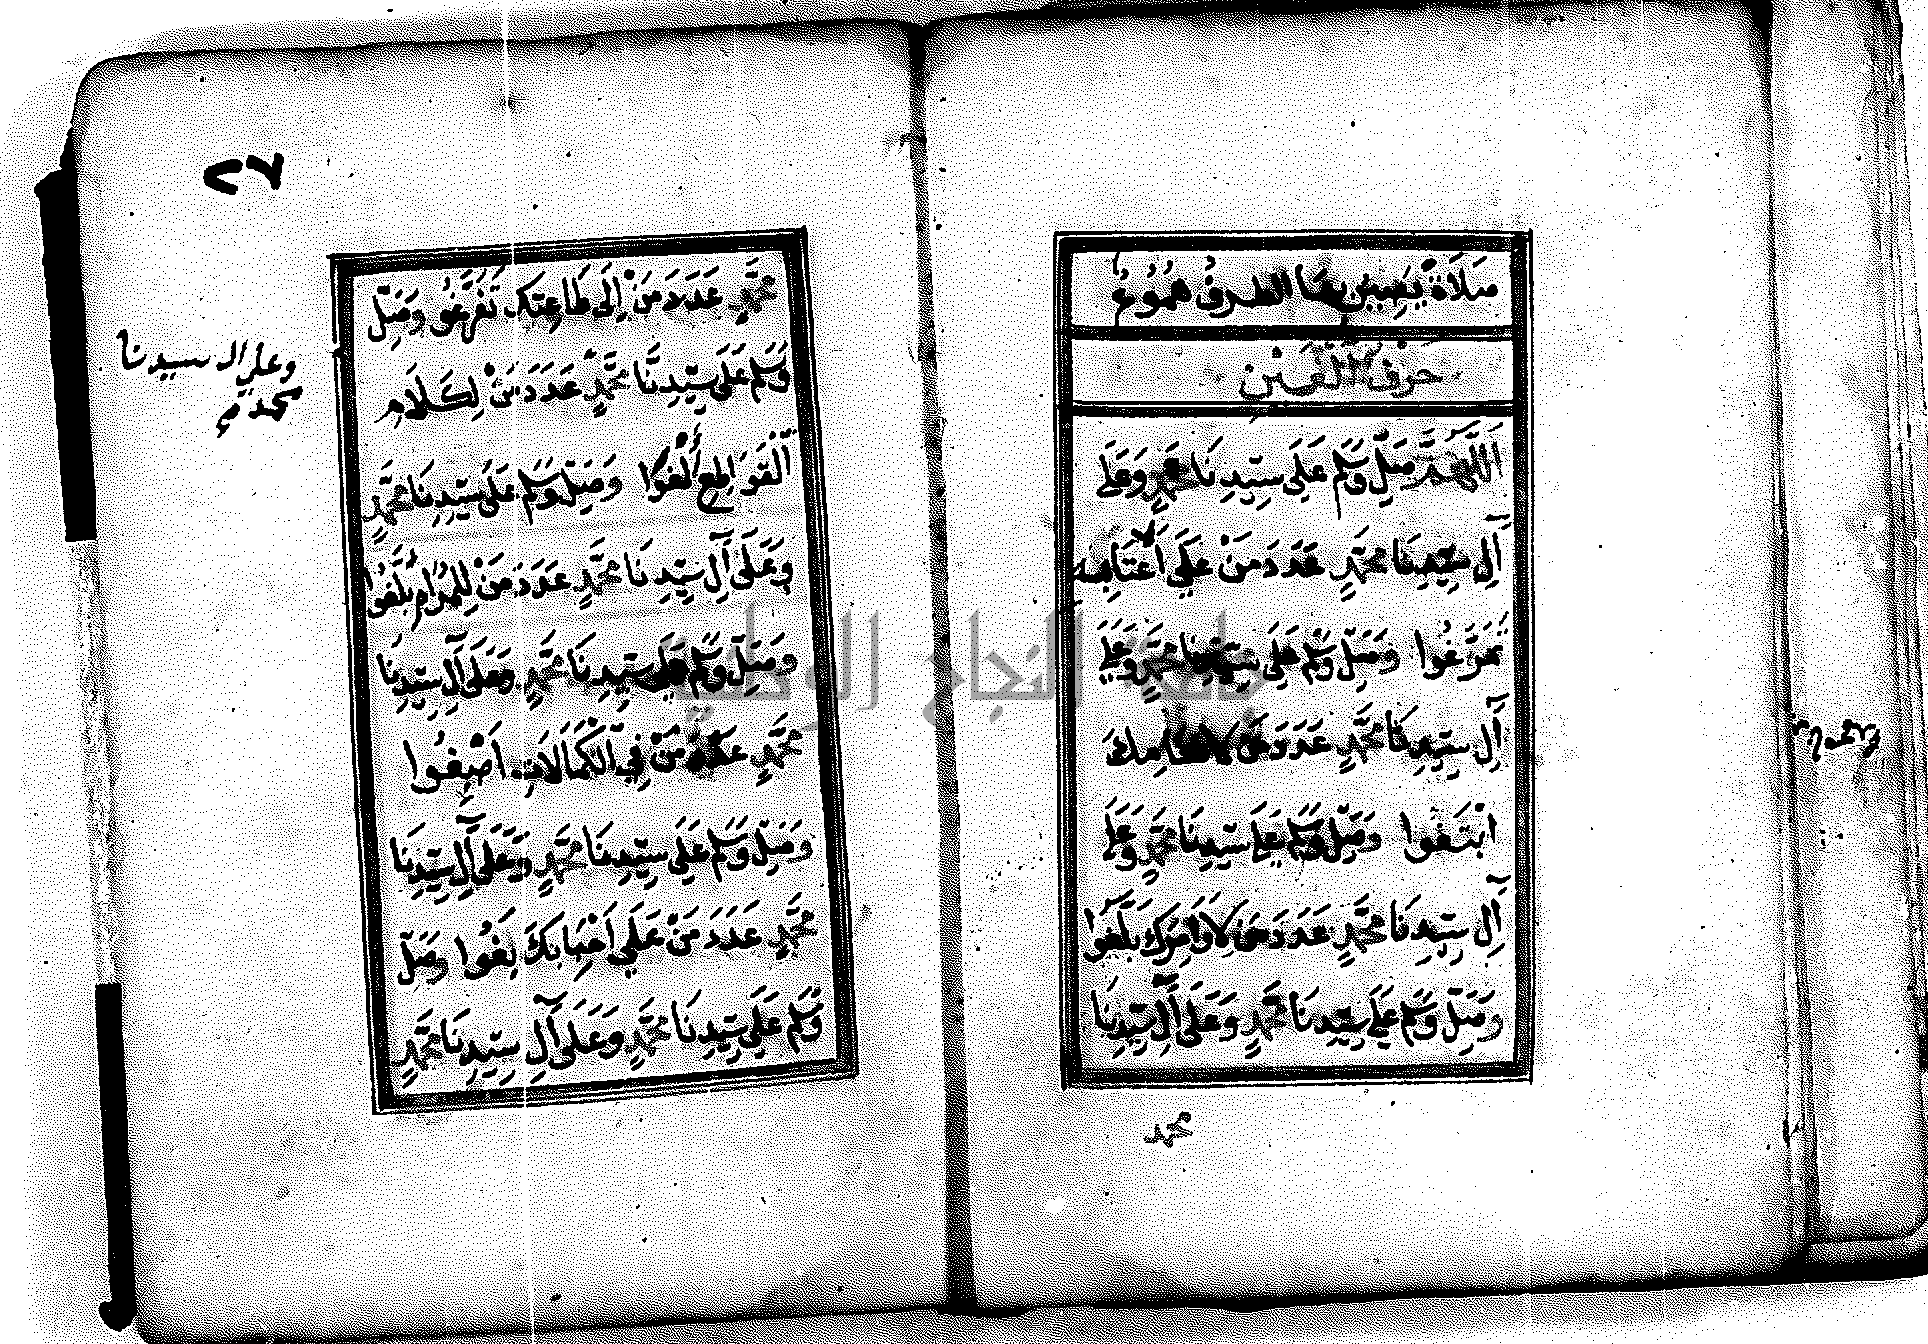 صَلَاةً يَفِيضُ بِهَا الطَّرْفُ هُمُوعُ
حَرْفُ الْغَيْنِ
اَللّٰهُمَّ صَلِّ وَسَلِّمْ عَلَى سَيِّدِنَا مُحَمَّدٍ وَعَلَى
آلِ سَيِّدِنَا مُحَمَّدٍ عَدَدَ مَنْ عَلَى أَعْتَابِهِ
تَمَرَّغُوا وَصَلِّ وَسَلِّمْ عَلَى سَيِّدِنَا مُحَمَّدٍ وَعَلَى
آلِ سَيِّدِنَا مُحَمَّدٍ عَدَدَ مَنْ لِأَحْكَامِكَ
ابْتَغَوا وَصَلِّ وَسَلِّمْ عَلَى سَيِّدِنَا مُحَمَّدٍ وَعَلَى
آلِ سَيِّدِنَا مُحَمَّدٍ عَدَدَ مَنْ لِأَوَامِرِكَ بَلَّغُوا
وَصَلِّ وَسَلِّمْ عَلَى سَيِّدِنَا مُحَمَّدٍ وَعَلَى آلِ سَيِّدِنَا
محمد
٢٦
مُحَمَّدٍ عَدَدَ مَنْ إِلَى طَاعَتِكَ تَفَرَّغُوا وَصَلِّ
وَسَلِّمْ عَلَى سَيِّدِنَا مُحَمَّدٍ عَدَدَ مَنْ لِكَلَامِ
وعلى ال سيدنا
محمد
وَصَلِّ وَسَلِّمْ عَلَى سَيِّدِنَا مُحَمَّدٍ
وَعَلَى آلِ سَيِّدِنَا مُحَمَّدٍ عَدَدَ مَنْ لِلْمَرَامِ بَلَغُوا
وَصَلِّ وَسَلِّمْ عَلَى سَيِّدِنَا مُحَمَّدٍ وَعَلَى آلِ سَيِّدِنَا
مُحَمَّدٍ عَدَدَ مَنْ فِي الْكَمَالَاتِ اصْبِغُوا
وَصَلِّ وَسَلِّمْ عَلَى سَيِّدِنَا مُحَمَّدٍ وَعَلَى آلِ سَيِّدِنَا
مُحَمَّدٍ عَدَدَ مَنْ عَلَى أَحْبَابِكَ بَغُوا وَصَلِّ
وَسَلِّمْ عَلَى سَيِّدِنَا مُحَمَّدٍ وَعَلَى آلِ سَيِّدِنَا مُحَمَّدٍ
جامعة النجاح الوطنية